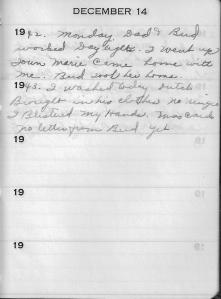 DECEMBER 14
1942. Monday, Dad & Bud
worked Day nights. I went up
Town Marie Came home with
me. Bud took her home.
1943. I washed today Dutch
Brought in his clothes no
I Blisterd my Hands. Xmas Cards
no letter from Bud yet
19
19
19